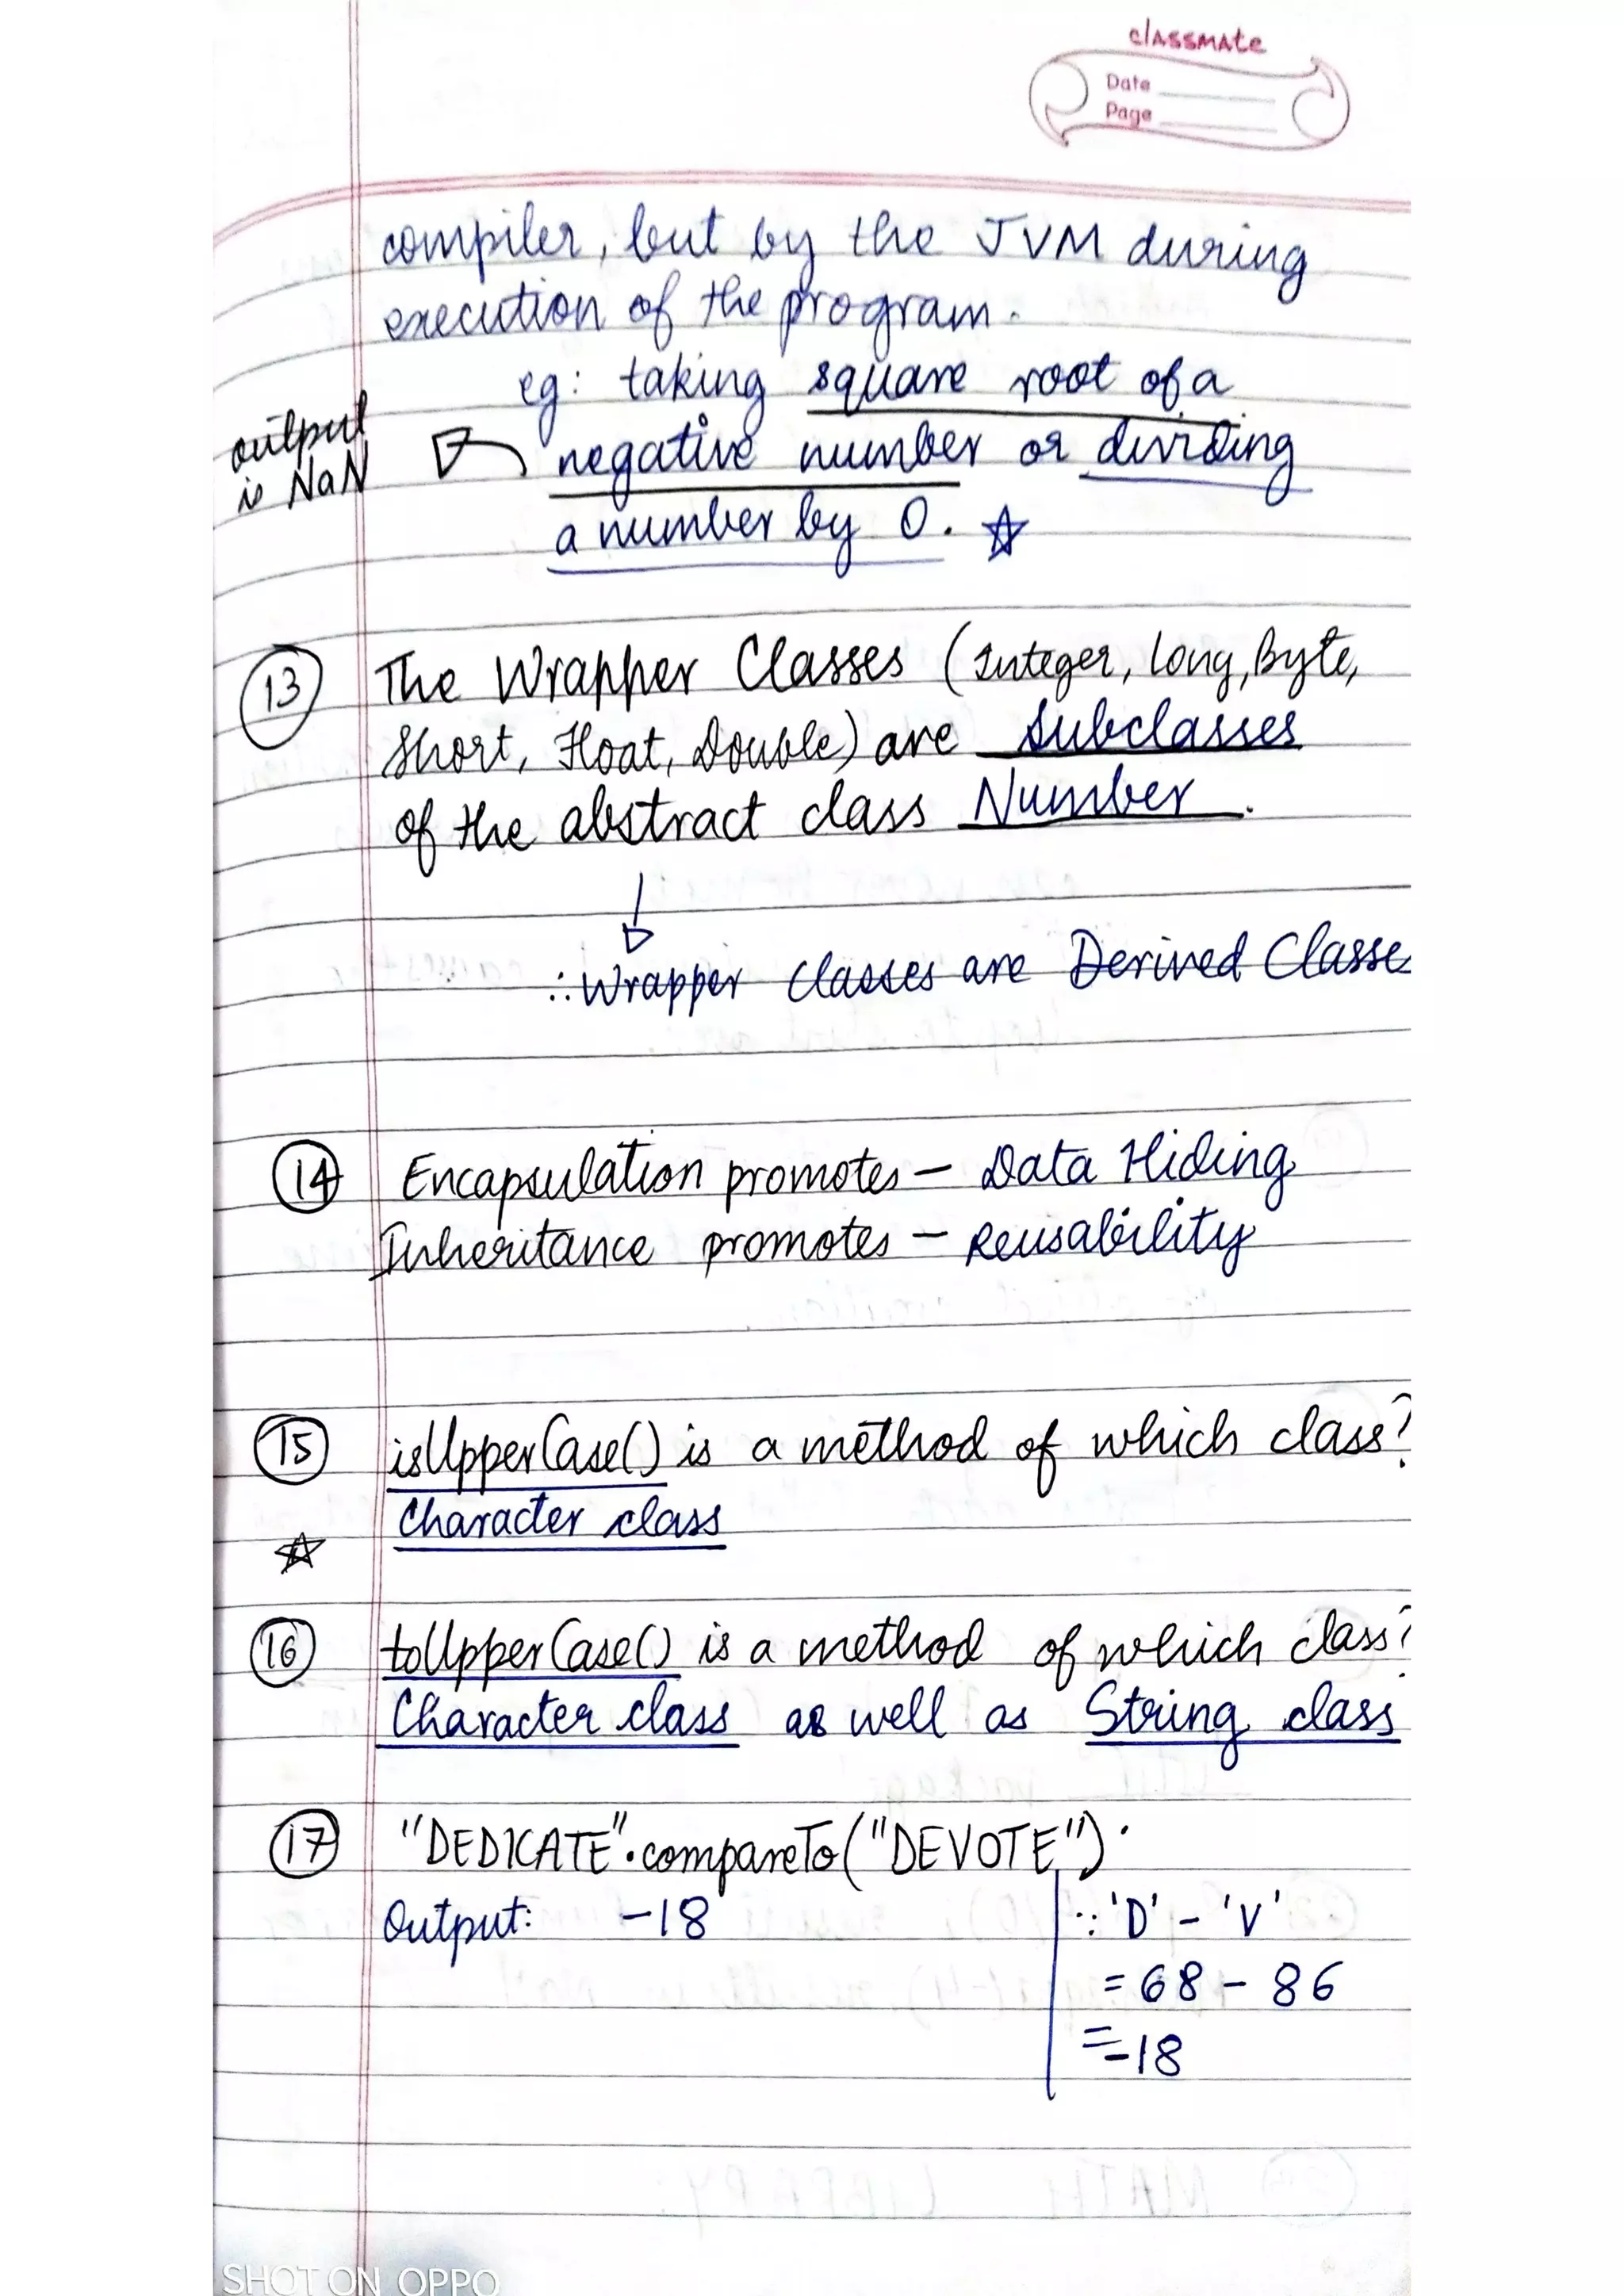 classmate
Date
Page
compiler, but by the JVM during
execution of the program.
eg: taking square root of a
output
is NaN
negative number or dividing
a number by 0.
13 The Wrapper Classes (Integer, Long, Byte,
Short, Float, Double) are subclasses
of the abstract class Number.
∴ Wrapper Classes are Derived Classe
14 Encapsulation promotes – Data Hiding
Inheritance promotes – Reusability
15 isUpperCase() is a method of which class?
Character class
16 toUpperCase() is a method of which class?
Character class as well as String class
17 "DEDICATE".compareTo("DEVOTE").
Output: -18
∵ 'D' - 'V'
= 68 - 86
= -18
SHOT ON OPPO